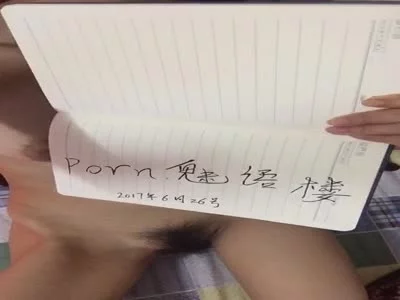 Porn魅语楼
2017年6月26号